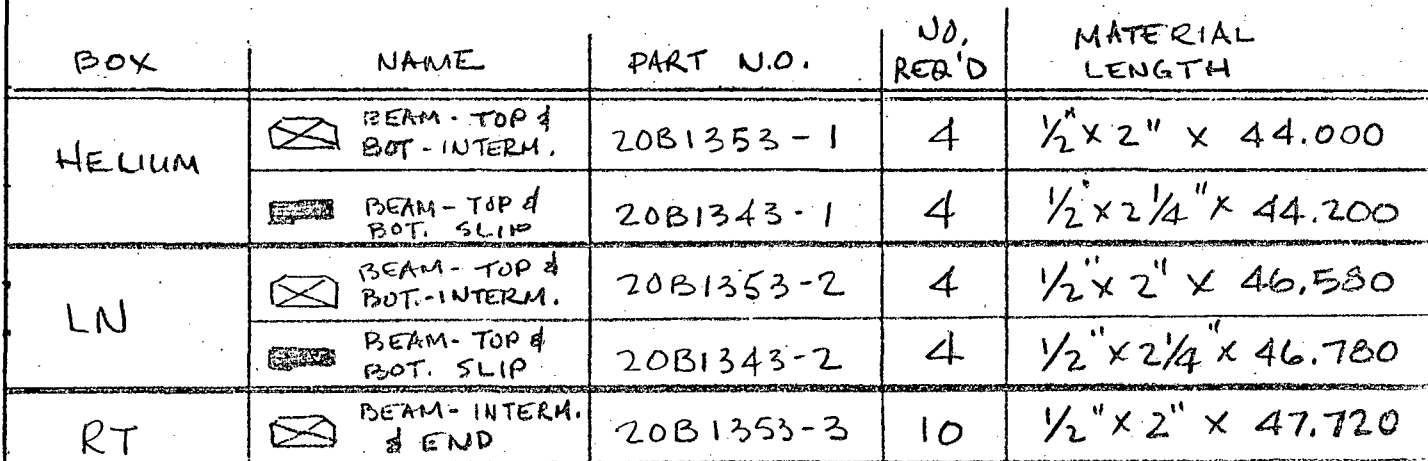 BOX NAME PART N.O. NO. REQ'D MATERIAL LENGTH
HELIUM
BEAM - TOP & BOT - INTERM. 20B1353 - 1 4 1/2" x 2" x 44.000
BEAM - TOP & BOT. SLIP 20B1343 - 1 4 1/2" x 2 1/4" x 44.200
LN
BEAM - TOP & BOT. - INTERM. 20B1353 - 2 4 1/2" x 2" x 46.580
BEAM - TOP & BOT. SLIP 20B1343 - 2 4 1/2" x 2 1/4" x 46.780
RT BEAM - INTERM. & END 20B1353 - 3 10 1/2" x 2" x 47.720